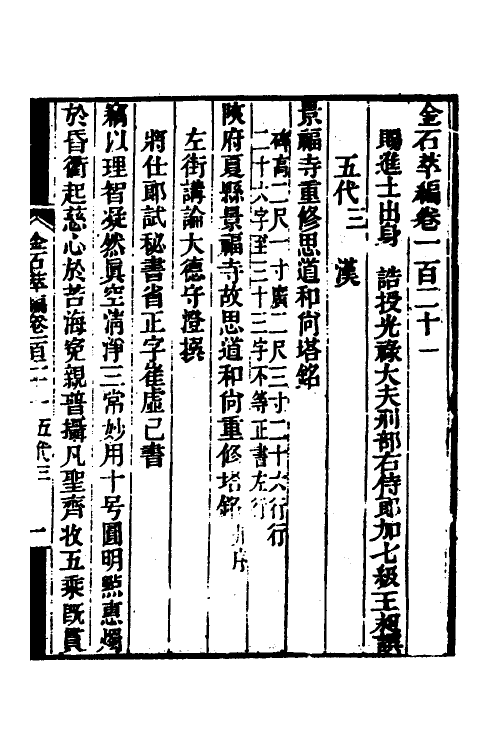 金石萃編卷一百二十一
賜進士出身 誥授光祿大夫刑部右侍郎加七級王昶譔
五代三 漢
景福寺重修思道和尚塔銘
碑高二尺一寸廣二尺三寸二十六行行
二十六字至三十三字不等正書左行
陜府夏縣景福寺故思道和尚重修塔銘并序
左街講論大德守澄撰
將仕郎試秘書省正字崔虛己書
竊以理智凝然眞空淸淨三常妙用十号圓明㸃惠燭
於昏衢起慈心於苦海寃親普攝凡聖齊收五乘旣貫
金石萃編卷一百二十一 五代三 一